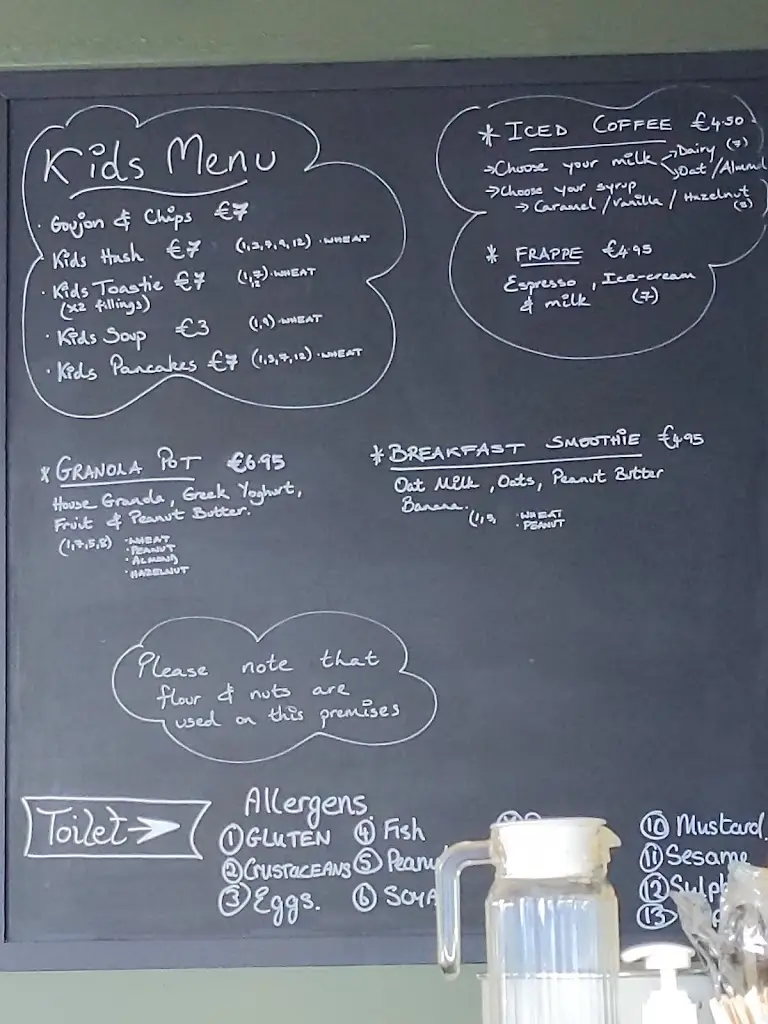 Kids Menu
· Goujon & Chips €7
· Kids Hash €7 (1,3,7,9,12) · WHEAT
· Kids Toastie €7 (1,7,12) · WHEAT
(x2 fillings)
· Kids Soup €3 (1,9) · WHEAT
· Kids Pancakes €7 (1,3,7,12) · WHEAT
* ICED COFFEE €4.50
→ Choose your milk → Dairy (7)
→ Oat / Almond
→ Choose your syrup
→ Caramel / Vanilla / Hazelnut
(8)
* FRAPPE €4.95
Espresso, Ice-cream
& milk (7)
* GRANOLA POT €6.95
House Granola, Greek Yoghurt,
Fruit & Peanut Butter.
(1,7,5,8) · WHEAT
· PEANUT
· ALMOND
· HAZELNUT
* BREAKFAST SMOOTHIE €4.95
Oat Milk, Oats, Peanut Butter
Banana.
(1,5, · WHEAT
· PEANUT
Please note that
flour & nuts are
used on this premises
Toilet →
Allergens
① GLUTEN
② CRUSTACEANS
③ Eggs.
④ Fish
⑤ Peanu
⑥ SOYA
⑩ Mustard
⑪ Sesame
⑫ Sulph
⑬